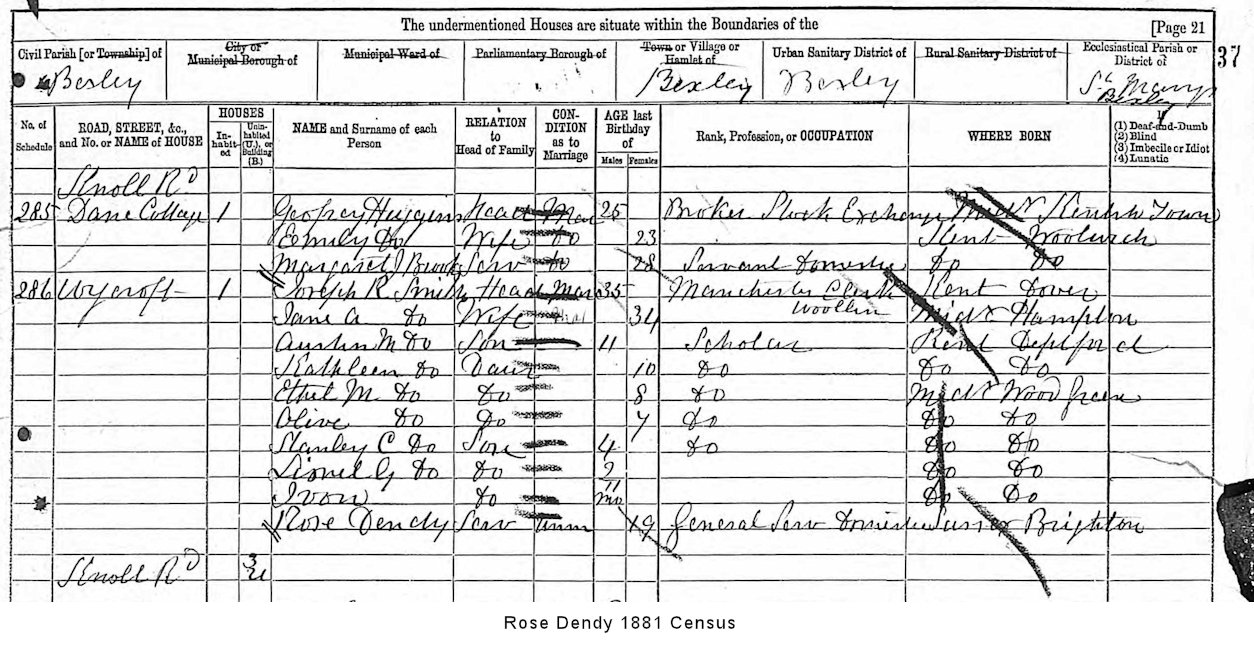 The undermentioned Houses are situate within the Boundaries of the
[Page 21
37
Civil Parish [or Township] of
City or Municipal Borough of
Municipal Ward of
Parliamentary Borough of
Town or Village or Hamlet of
Urban Sanitary District of
Rural Sanitary District of
Ecclesiastical Parish or District of
Bexley
Bexley
Bexley
St Marys Bexley
No. of Schedule
ROAD, STREET, &c., and No. or NAME of HOUSE
HOUSES
In-habit-ed
Unin-habited (U.), or Building (B.)
NAME and Surname of each Person
RELATION to Head of Family
CON-DITION as to Marriage
AGE last Birthday of
Males
Females
Rank, Profession, or OCCUPATION
WHERE BORN
If
(1) Deaf-and-Dumb
(2) Blind
(3) Imbecile or Idiot
(4) Lunatic
Knoll Rd
285 Dane Cottage 1 Geofrey Huggins Head Mar 25 Broker Stock Exchange Middx Kentish Town
Emily Do Wife Do 23 Kent Woolwich
Margaret J Brook Serv Do 28 Servant Domestic Do Do
286 Wycroft 1 Joseph R Smith Head Mar 35 Manchester Clerk Woollen Kent Dover
Jane A Do Wife 34 Middx Hampton
Austin M Do Son 11 Scholar Kent Deptford
Kathleen Do Daur 10 Do Do Do
Ethel M Do Do 8 Do Middx Wood Green
Olive Do Do 7 Do Do Do
Stanley C Do Son 4 Do Do Do
Lionel G Do Do 2 Do Do
Ivon Do 11 mo Do Do
Rose Dendy Serv Unm 19 General Serv Domestic Sussex Brighton
Knoll Rd 3 U
Rose Dendy 1881 Census